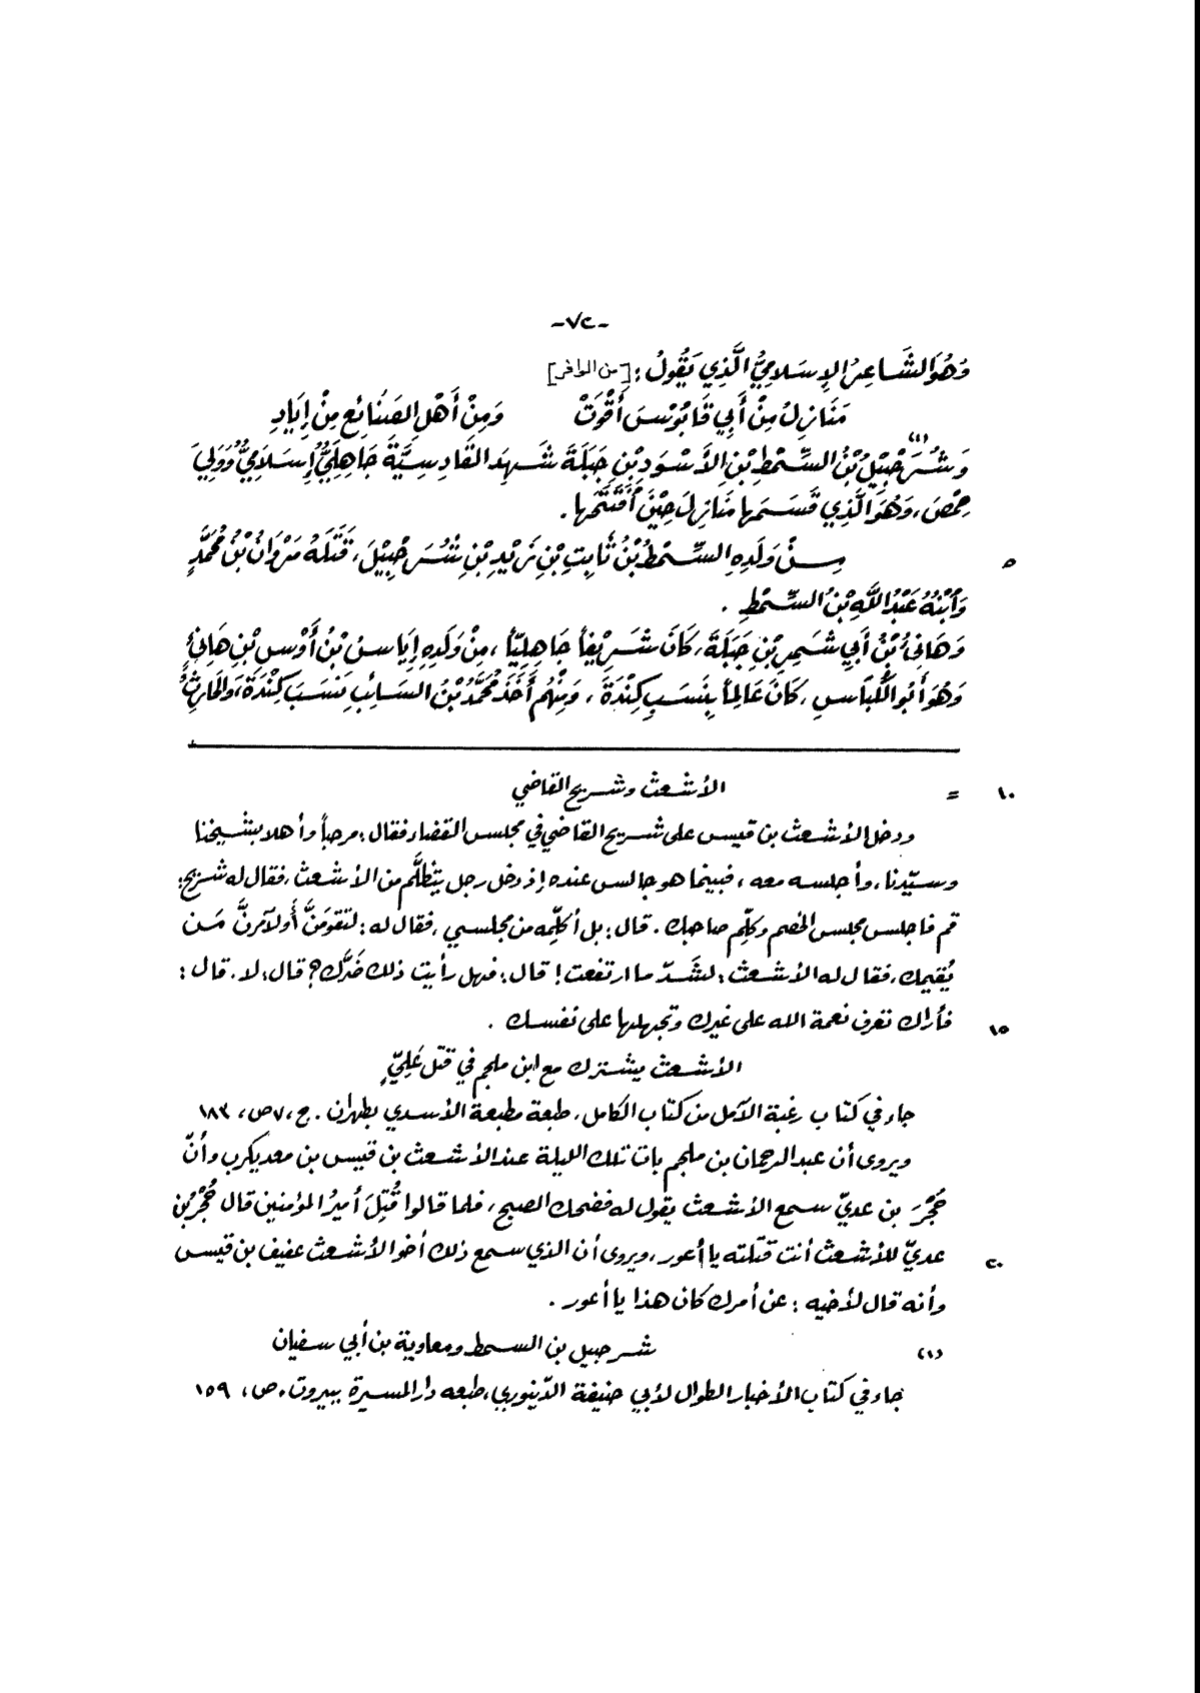 -٧٢-
وَهُوَ الشَّاعِرُ الإِسْلَامِيُّ الَّذِي يَقُولُ: [من الوافر]
مَنَازِلُ مِنْ أَبِي قَابُوْسَ أَقْوَتْ وَمِنْ أَهْلِ الصَّنَائِعِ مِنْ إِيَادِ
وَشُرَحْبِيْلُ بْنُ السِّمْطِ بْنِ الأَسْوَدِ بْنِ جَبَلَةَ (١) شَهِدَ القَادِسِيَّةَ جَاهِلِيٌّ إِسْلَامِيٌّ وَوَلِيَ
حِمْصَ، وَهُوَ الَّذِي قَسَمَهَا مَنَازِلَ حِيْنَ افْتَتَحَهَا.
٥ مِنْ وَلَدِهِ السِّمْطُ بْنُ ثَابِتِ بْنِ يَزِيْدِ بْنِ شُرَحْبِيْلَ، قَتَلَهُ مَرْوَانُ بْنُ مُحَمَّدٍ
وَابْنُهُ عَبْدُ اللَّهِ بْنُ السِّمْطِ.
وَهَانِئُ بْنُ أَبِي شَمِرِ بْنِ جَبَلَةَ، كَانَ شَرِيْفاً جَاهِلِيّاً، مِنْ وَلَدِهِ إِيَاسُ بْنُ أَوْسِ بْنِ هَانِئٍ
وَهُوَ أَبُو الكُبَاسِ، كَانَ عَالِماً بِنَسَبِ كِنْدَةَ، وَمِنْهُمْ أَخَذَ مُحَمَّدُ بْنُ السَّائِبِ نَسَبَ كِنْدَةَ، وَالحَارِثُ
١٠ = الأشعث وشريح القاضي
ودخل الأشعث بن قيس على شريح القاضي في مجلس القضاء فقال: مرحباً وأهلا بشيخنا
وسيّدنا، وأجلسه معه، فبينما هو جالس عنده إذ دخل رجل يتظلَّم من الأشعث، فقال له شريح:
قم فاجلس مجلس الخصم وكلِّم صاحبك. قال: بل أكلِّمه من مجلسي، فقال له: لتقومَنَّ أَولآمرنَّ مَن
يُقيمك، فقال له الأشعث: لشَدّ ما ارتفعت! قال: فهل رأيت ذلك ضَرَّك؟ قال: لا. قال:
١٥ فأراك تعرف نعمة الله على غيرك وتجهلها على نفسك.
الأشعث يشترك مع ابن ملجم في قتل عَلِيّ
جاء في كتاب رغبة الآمل من كتاب الكامل، طبعة مطبعة الأسدي بطهران. ج، ٧ ص، ١٨٣
ويروى أن عبد الرحمان بن ملجم بات تلك الليلة عند الأشعث بن قيس بن معديكرب وأنّ
حُجْرَ بن عديّ سمع الأشعث يقول له فضحك الصبح، فلما قالوا قُتِلَ أميرُ المؤمنين قال حُجْرُ بن
٢٠ عديّ للأشعث أنت قتلته يا أعور، ويروى أن الذي سمع ذلك أخو الأشعث عفيف بن قيس
وأنه قال لأخيه: عن أمرك كان هذا يا أعور.
(١) شرحبيل بن السمط ومعاوية بن أبي سفيان
جاء في كتاب الأخبار الطوال لأبي حنيفة الدّينوري، طبعه دار المسيرة ببيروت. ص، ١٥٩